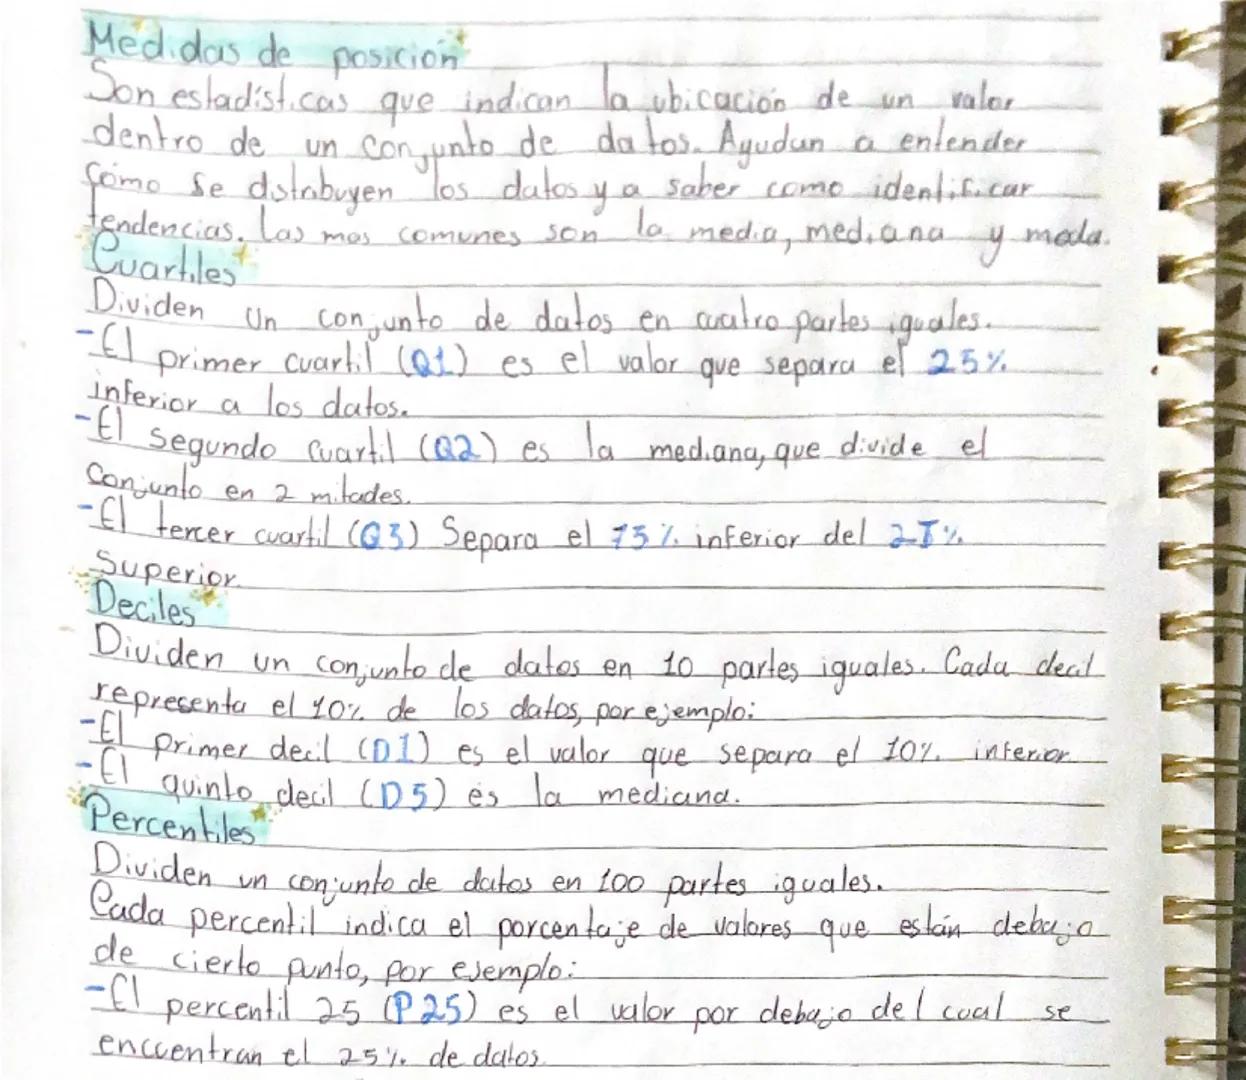 Medidas de posición
Son estadísticas que indican la ubicación de un valor
dentro de un conjunto de datos. Ayudan a entender
como se distribuyen los datos y a saber como identificar
tendencias. Las mas comunes son la media, mediana y moda.
Cuartiles
Dividen un conjunto de datos en cuatro partes iguales.
-El primer cuartil (Q1) es el valor que separa el 25%
inferior a los datos.
-El segundo cuartil (Q2) es la mediana, que divide el
Conjunto en 2 mitades.
-El tercer cuartil (Q3) Separa el 75% inferior del 25%
Superior.
Deciles
Dividen un conjunto de datos en 10 partes iguales. Cada decil
representa el 10% de los datos, por ejemplo:
-El primer decil (D1) es el valor que separa el 10% inferior
-El quinto decil (D5) es la mediana.
Percentiles
Dividen un conjunto de datos en 100 partes iguales.
Cada percentil indica el porcentaje de valores que están debajo
de cierto punto, por ejemplo:
-El percentil 25 (P25) es el valor por debajo del cual se
encuentran el 25% de datos.